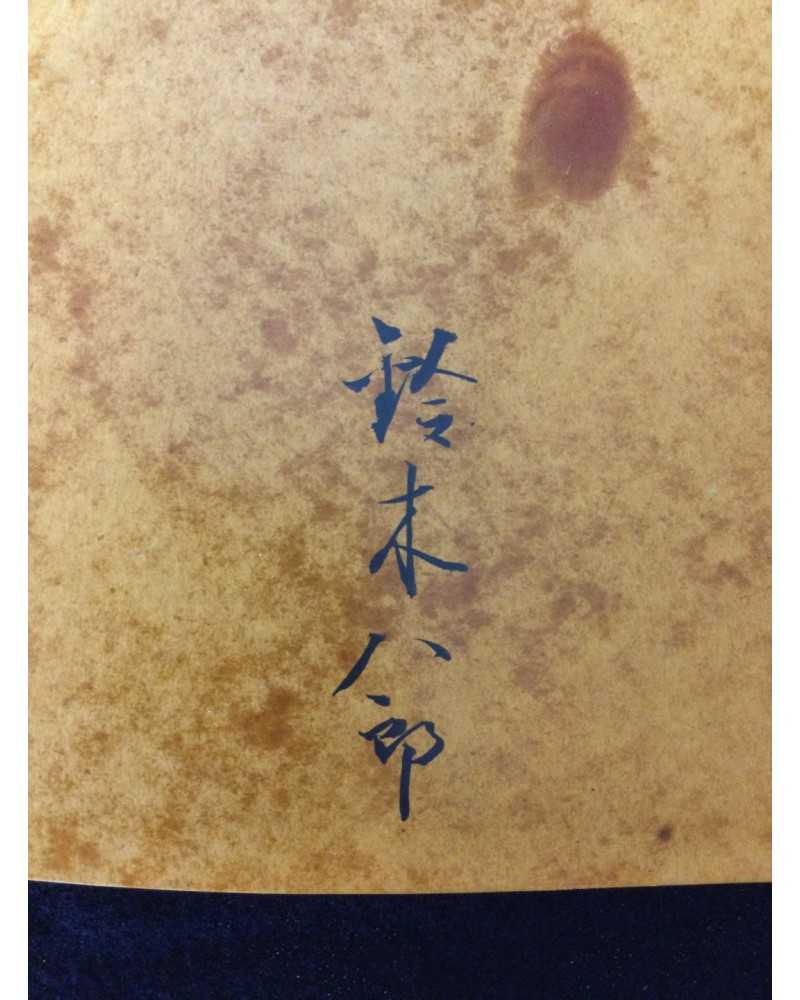 鈴木八郎